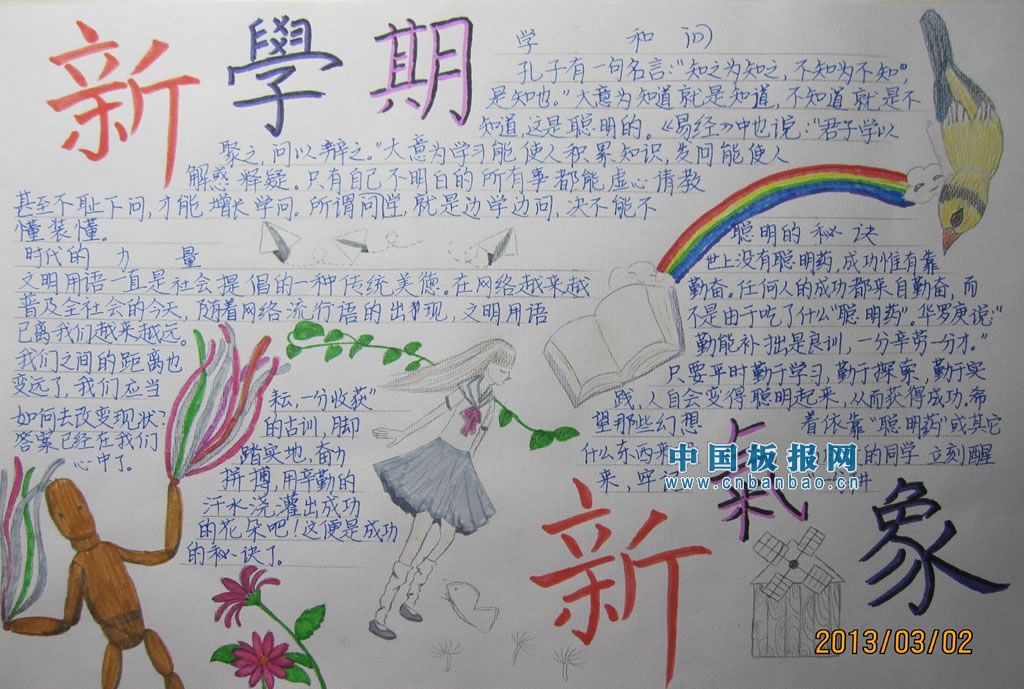 新學期
学和问
孔子有一句名言:"知之为知之,不知为不知,
是知也。"大意为知道就是知道,不知道就是不
知道,这是聪明的。《易经》中也说:"君子学以
聚之,问以辩之。"大意为学习能使人积累知识,发问能使人
解惑释疑。只有自己不明白的所有事都能虚心请教
甚至不耻下问,才能增长学问。所谓问学,就是边学边问,决不能不
懂装懂。
时代的力量
文明用语一直是社会提倡的一种传统美德。在网络越来越
普及全社会的今天,随着网络流行语的出现,文明用语
已离我们越来越远。
我们之间的距离也
变远了,我们应当
如何去改变现状?
答案已经在我们
心中了。
聪明的秘诀
世上没有聪明药,成功惟有靠
勤奋。任何人的成功都来自勤奋,而
不是由于吃了什么"聪明药"。华罗庚说:"
勤能补拙是良训,一分辛劳一分才。"
只要平时勤于学习,勤于探索,勤于实
践,人自会变得聪明起来,从而获得成功。希
望那些幻想着依靠"聪明药"或其它
什么东西来
的同学立刻醒
来,牢记
耘,一分收获"
的古训,脚
踏实地,奋力
拼搏,用辛勤的
汗水浇灌出成功
的花朵吧!这便是成功
的秘诀了。
中国板报网
www.cnbanbao.cn
新氣象
2013/03/02